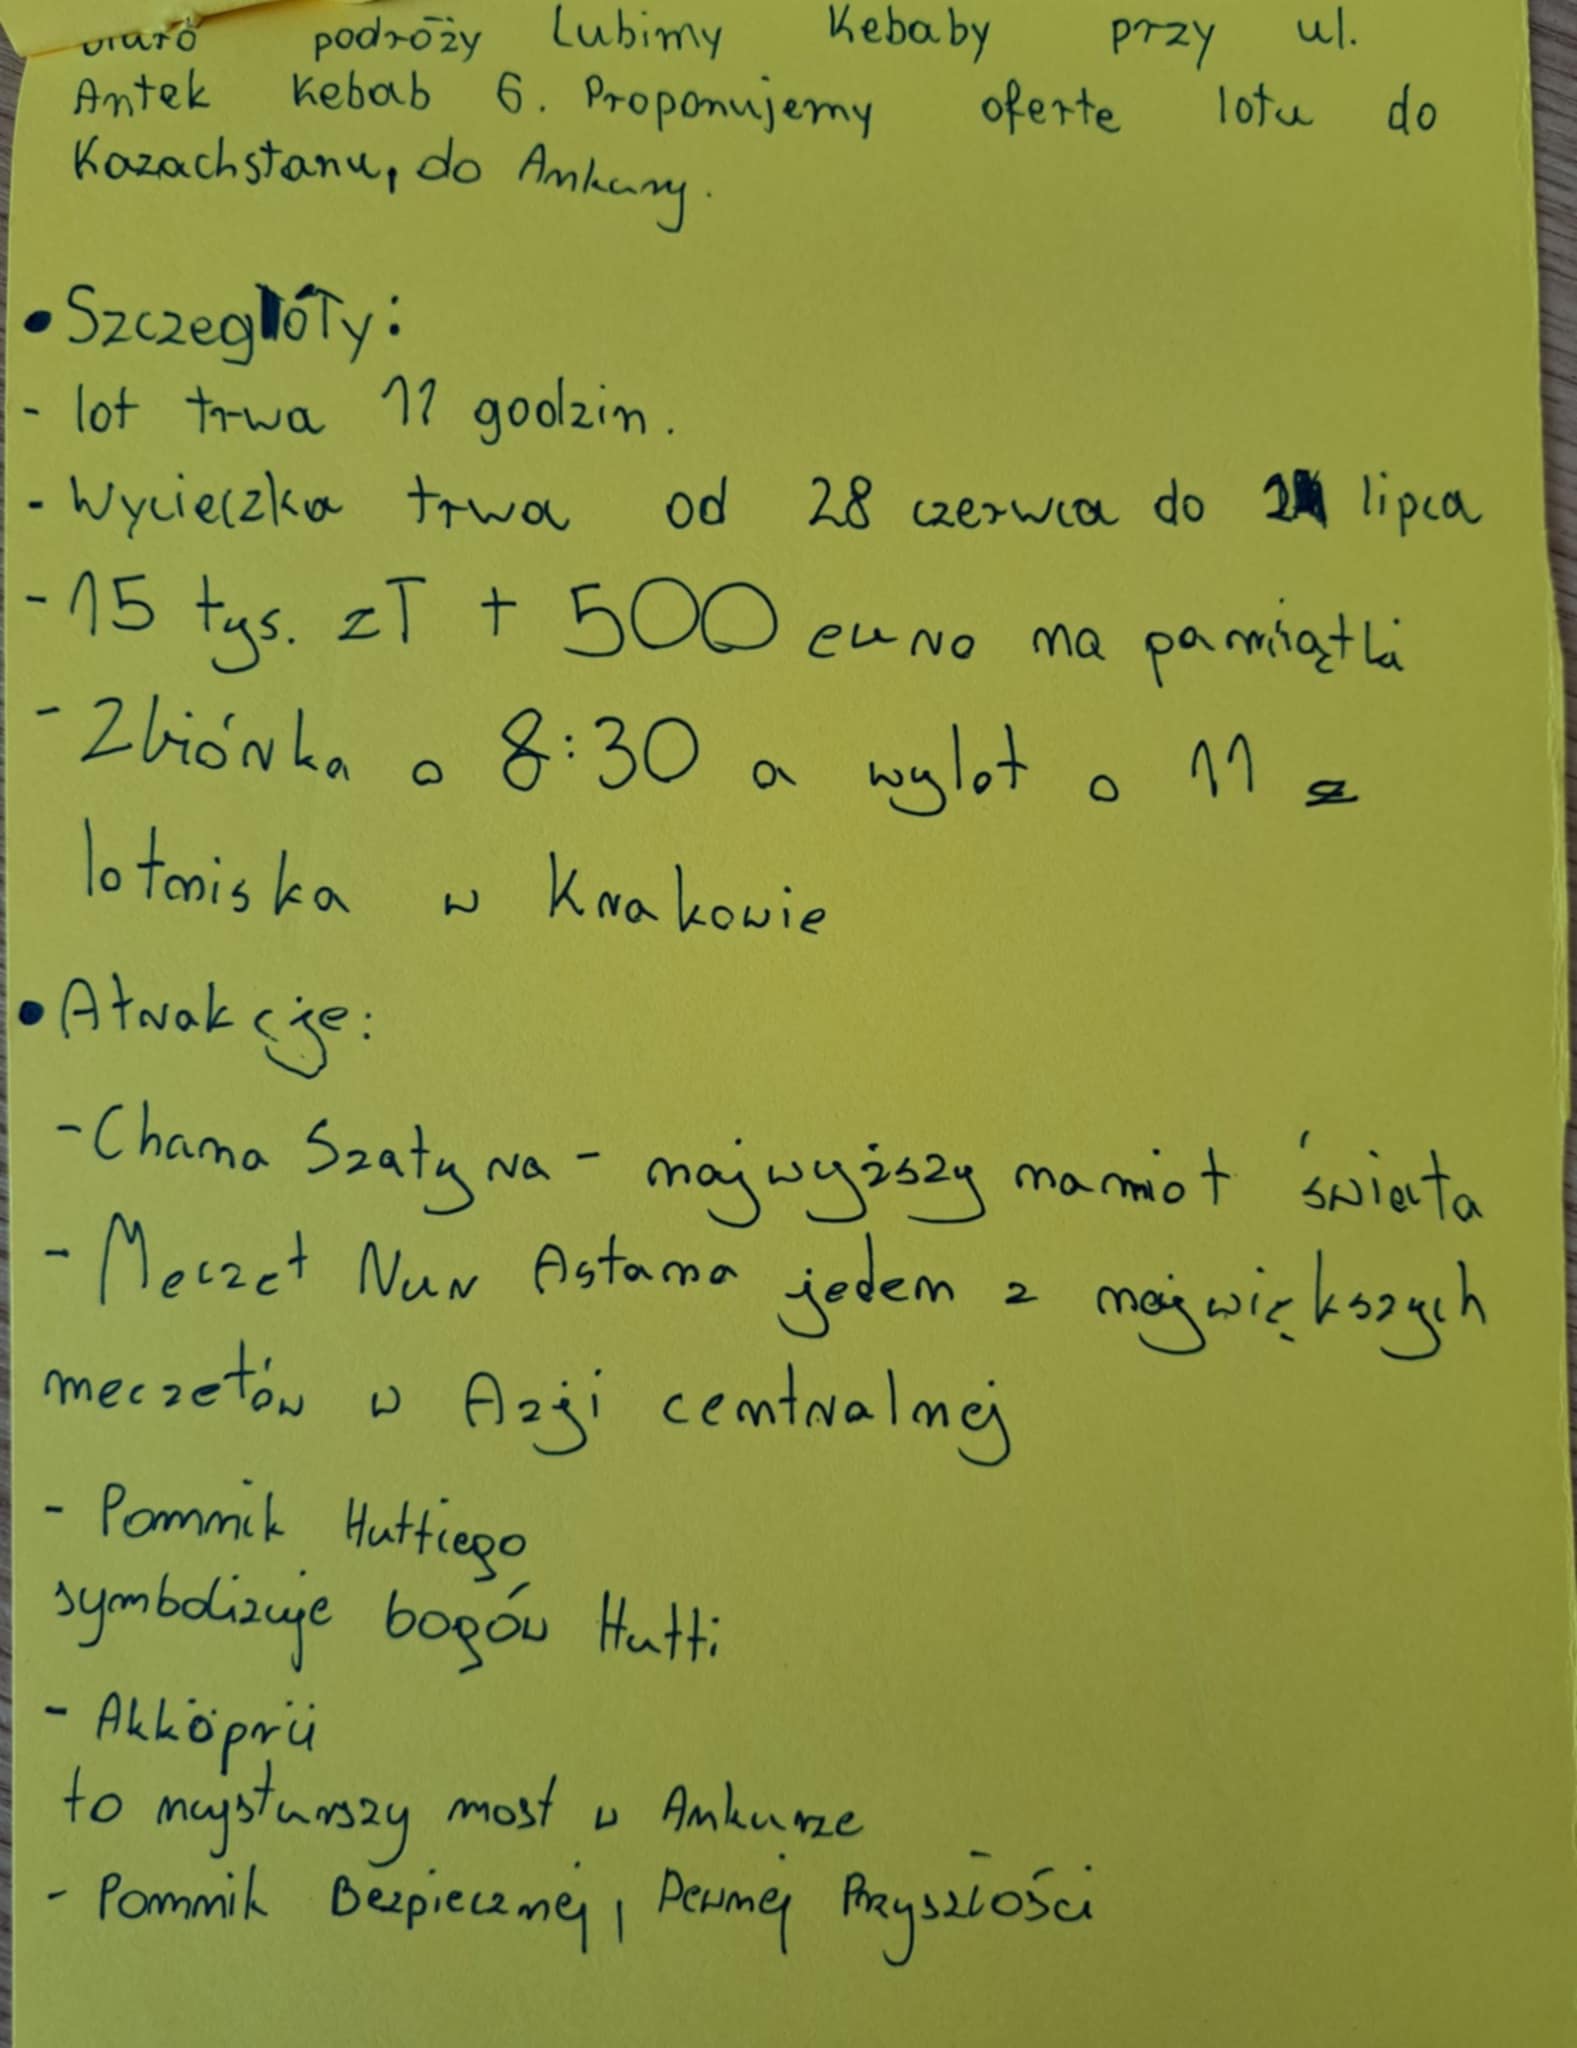 biuro podróży Lubimy Kebaby przy ul.
Antek Kebab 6. Proponujemy oferte lotu do
Kazachstanu, do Ankary.
• Szczegłóły:
- lot trwa 11 godzin.
- Wycieczka trwa od 28 czerwca do lipca
- 15 tys. zł + 500 euro na pamiątki
- Zbiórka o 8:30 a wylot o 11 z
lotniska w Krakowie
• Atrakcje:
- Chama Szatyra - najwyższy namiot świata
- Meczet Nur Astana jeden z największych
meczetów w Azji centralnej
- Pomnik Huttiego
symbolizuje bogów Hutti
- Akköprü
to najstarszy most w Ankarze
- Pomnik Bezpiecznej, Pewnej Przyszłości